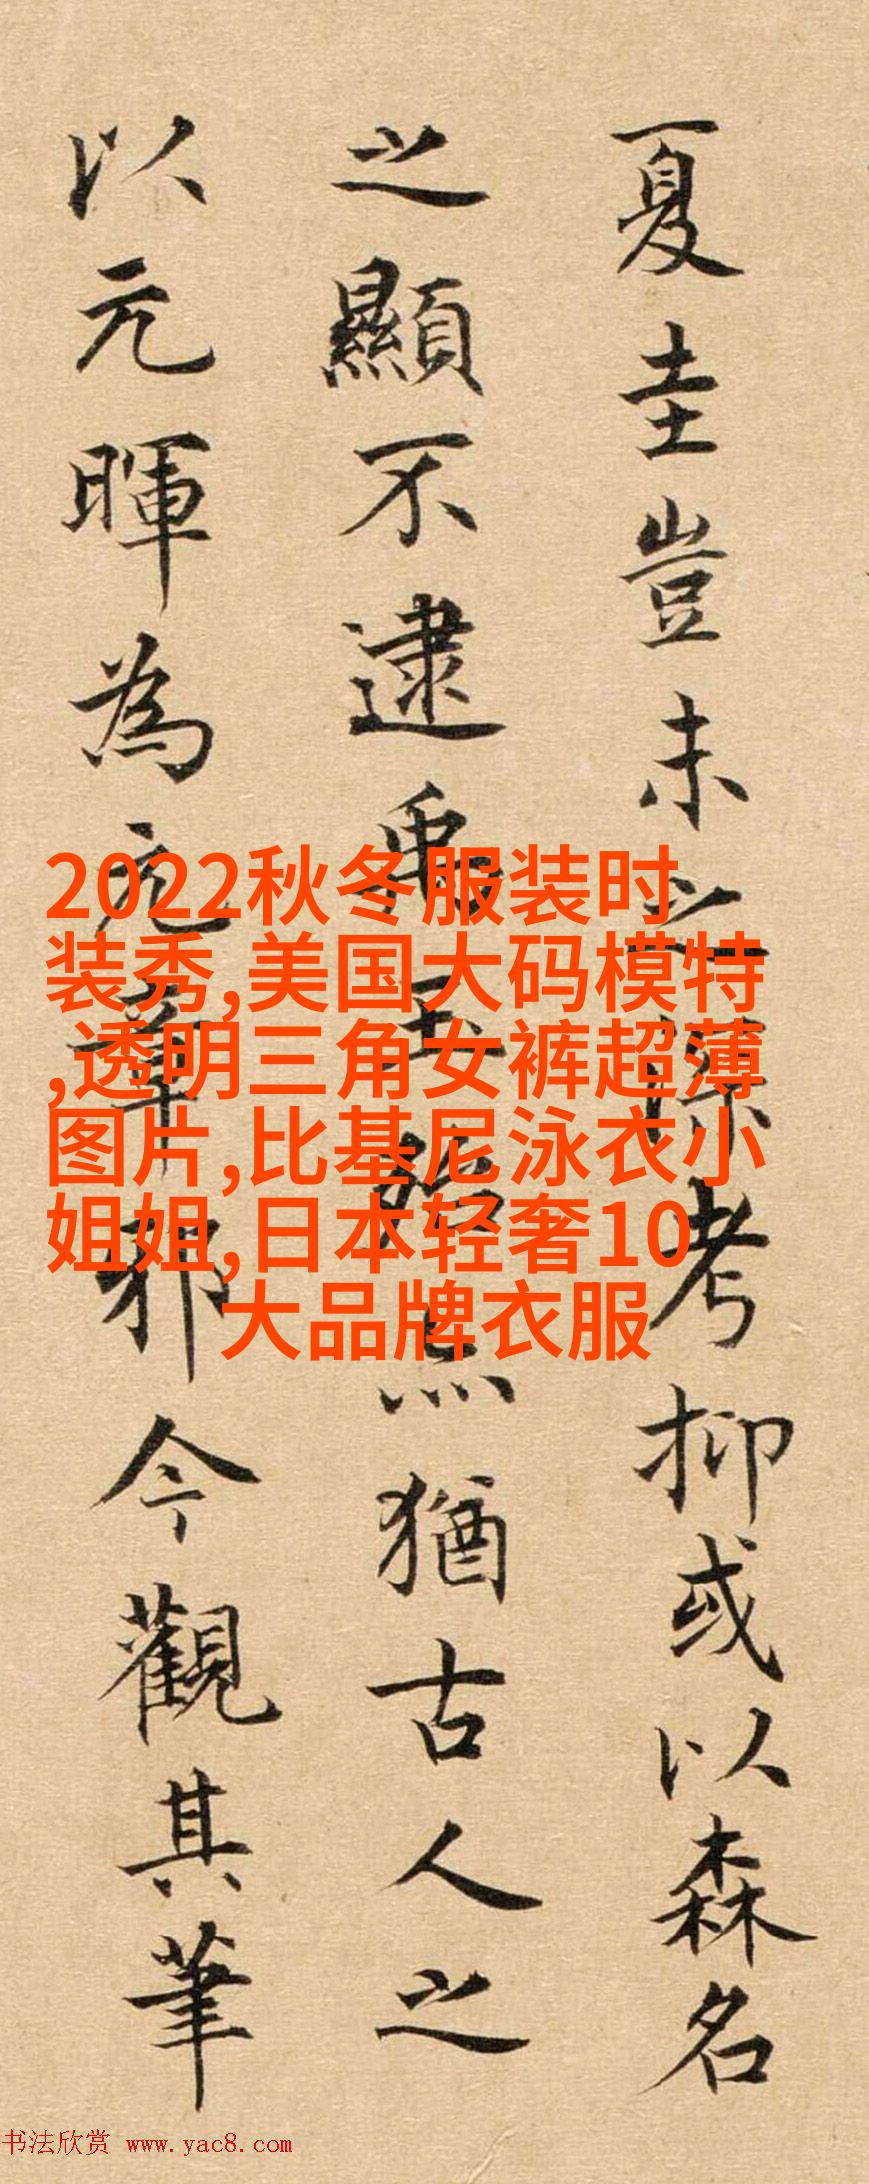 夏圭豈未之深考抑或以森名
之顯不逮禹玉殆猶古人之
以元暉為元章邪今觀其筆
2022秋冬服装时
装秀,美国大码模特
,透明三角女裤超薄
图片,比基尼泳衣小
姐姐,日本轻奢10
大品牌衣服
书法欣赏 www.yac8.com